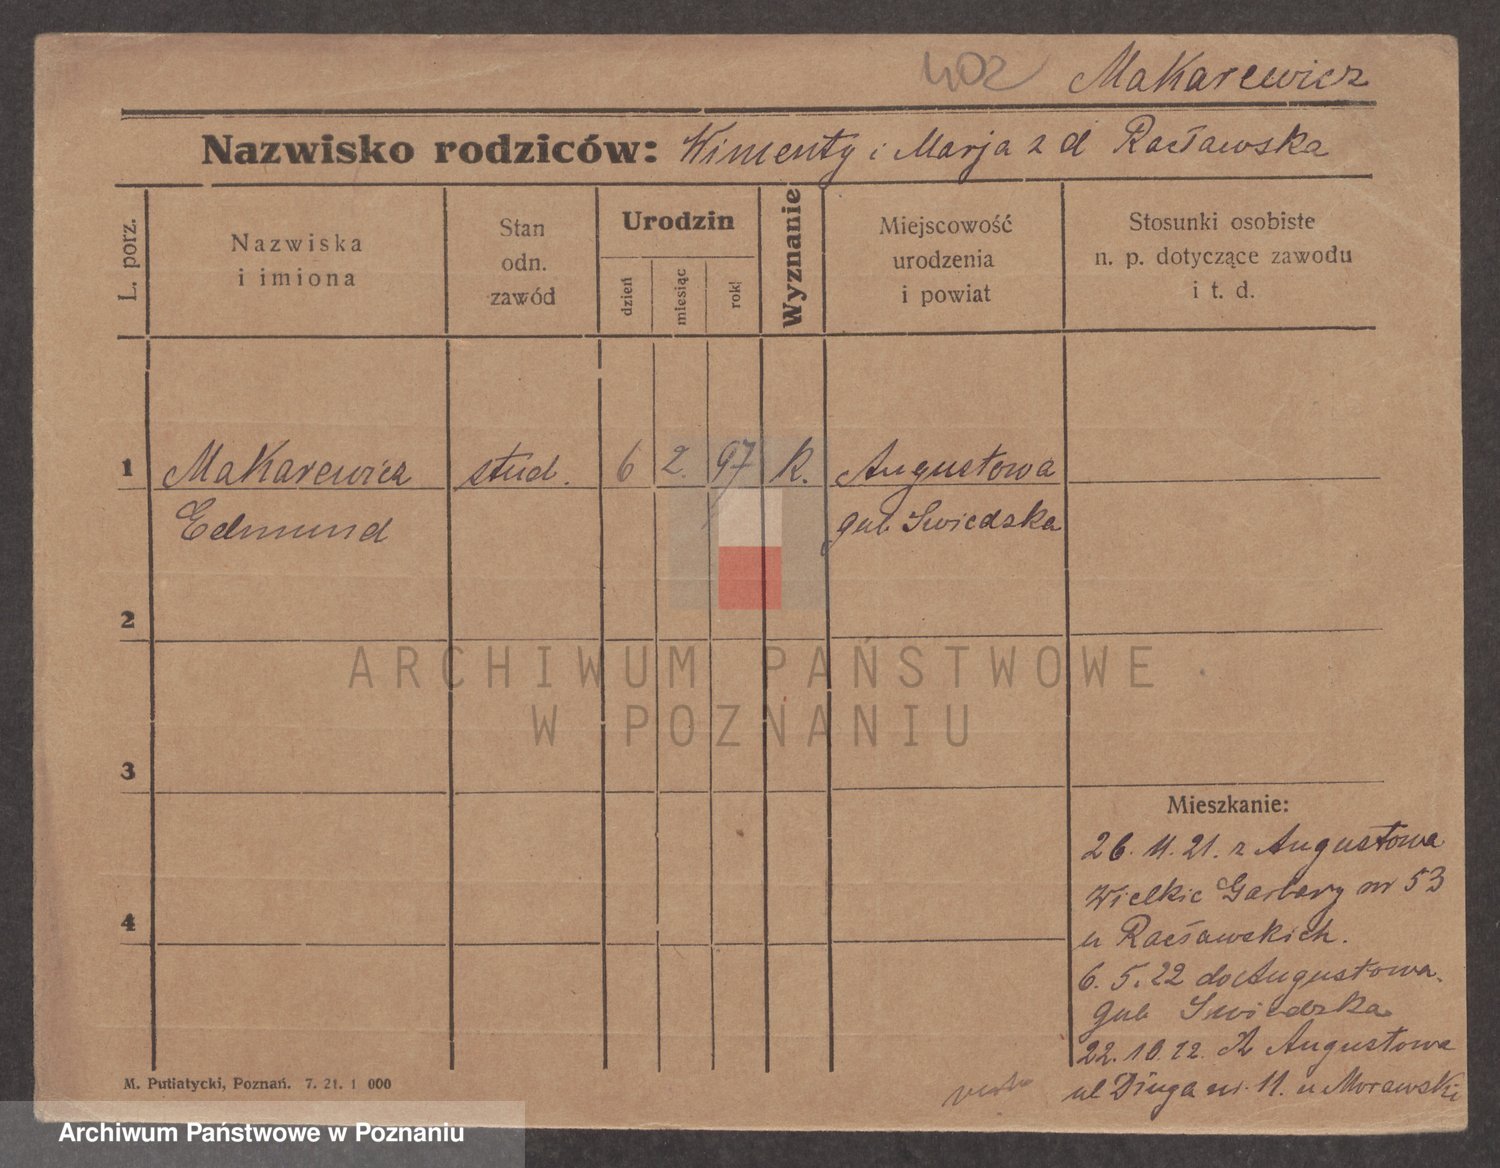 402 Makarewicz
Nazwisko rodziców: Wincenty i Marja z d Racławska
L. porz.
Nazwiska
i imiona
Stan
odn.
zawód
Urodzin
dzień
miesiąc
rok
Wyznanie
Miejscowość
urodzenia
i powiat
Stosunki osobiste
n. p. dotyczące zawodu
i t. d.
1 Makarewicz stud. 6 2. 97 k. Augustowa
Edmund gub Swiedska
2
3
4
Mieszkanie:
26. 11. 21. z Augustowa
Wielkie Garbary nr 53
u Racławskich.
6. 5. 22 do Augustowa.
gub Swiedzka
22. 10. 22. Z Augustowa
ul Długa nr. 11. u Morawski
M. Putiatycki, Poznań. 7. 21. 1 000
ARCHIWUM PAŃSTWOWE
W POZNANIU
Archiwum Państwowe w Poznaniu